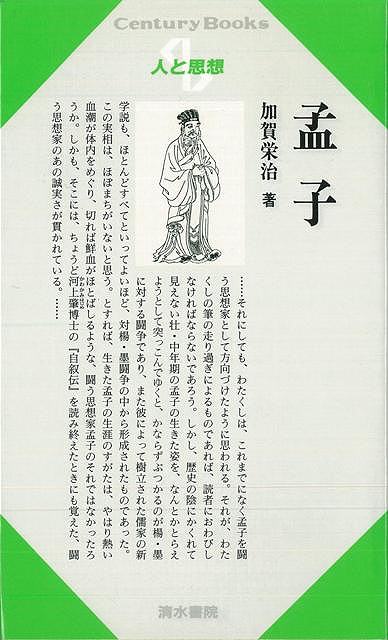 Century Books
人と思想
孟子
加賀栄治 著
……それにしても、わたくしは、これまでになく孟子を闘
う思想家として方向づけたように思われる。それが、わた
くしの筆の走り過ぎによるものであれば、読者におわびし
なければならないであろう。しかし、歴史の陰にかくれて
見えない壮・中年期の孟子の生きた姿を、なんとかとらえ
ようとして突っこんでゆくと、かならずぶつかるのが楊・墨
に対する闘争であり、また彼によって樹立された儒家の新
学説も、ほとんどすべてといってよいほど、対楊・墨闘争の中から形成されたものであった。
この実相は、ほぼまちがいないと思う。とすれば、生きた孟子の生涯のすがたは、やはり熱い
血潮が体内をめぐり、切れば鮮血がほとばしるような、闘う思想家孟子のそれではなかったろ
うか。しかも、そこには、ちょうど河上肇博士の『自叙伝』を読み終えたときにも覚えた、闘
う思想家のあの誠実さが貫かれている。……
清水書院